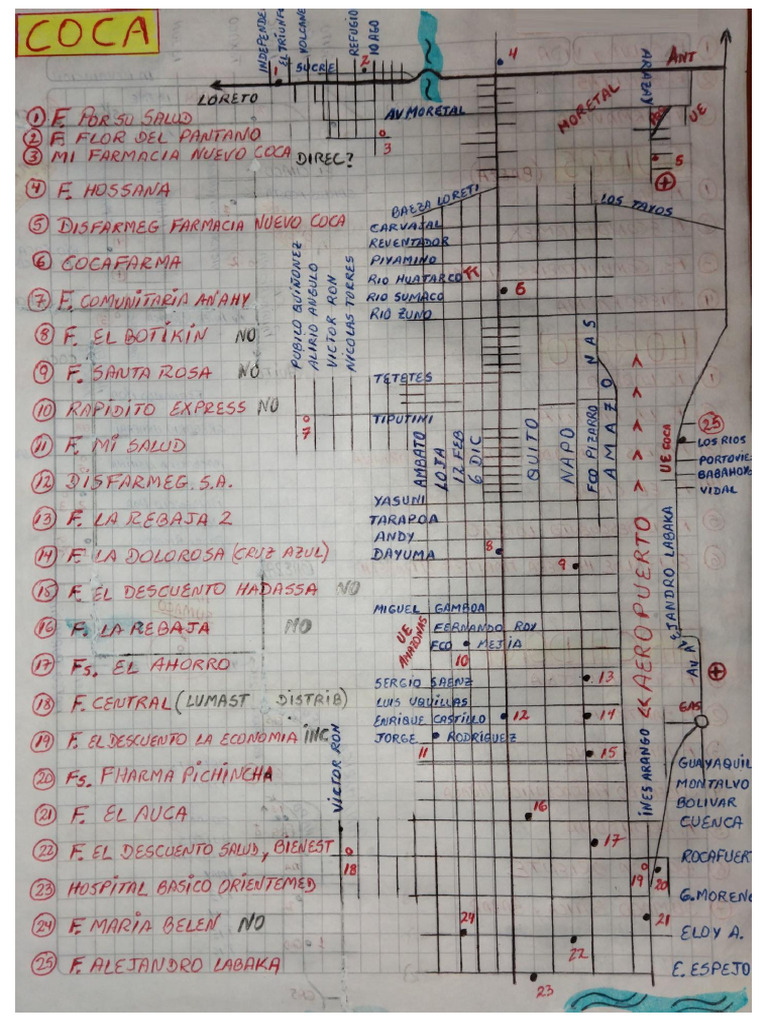 COCA
INDEPENDE
EL TRIUNFO
VOLCANE
REFUGIO
10 AGO
SUCRE
1
2
4
ANT
ARAZAY
LORETO
AV MORETAL
MORETAL
UE
3
5
① F. POR SU SALUD
② F. FLOR DEL PANTANO
③ MI FARMACIA NUEVO COCA DIREC?
④ F. HOSSANA
⑤ DISFARMEG FARMACIA NUEVO COCA
⑥ COCAFARMA
⑦ F. COMUNITARIA ANAHY
⑧ F. EL BOTIKIN NO
⑨ F. SANTA ROSA NO
⑩ RAPIDITO EXPRESS NO
⑪ F. MI SALUD
⑫ DISFARMEG. S.A.
⑬ F. LA REBAJA 2
⑭ F. LA DOLOROSA (CRUZ AZUL)
⑮ F. EL DESCUENTO HADASSA NO
⑯ F. LA REBAJA NO
⑰ Fs. EL AHORRO
⑱ F. CENTRAL (LUMAST DISTRIB)
⑲ F. EL DESCUENTO LA ECONOMIA INC
⑳ Fs. FHARMA PICHINCHA
㉑ F. EL AUCA
㉒ F. EL DESCUENTO SALUD, BIENEST
㉓ HOSPITAL BASICO ORIENTEMED
㉔ F. MARIA BELEN NO
㉕ F. ALEJANDRO LABAKA
BAEZA LORETI
LOS TAYOS
CARVAJAL
REVENTADOR
PIYAMINO
RIO HUATARCO
RIO SUMACO
6
RIO ZUNO
PUBILO QUIÑONEZ
ALIRIO ANGULO
VICTOR RON
NICOLAS TORRES
TETETES
TIPUTINI
7
AMBATO
LOJA
12 FEB
6 DIC
QUITO
NAPO
FCO PIZARRO
AMAZONAS
UE COCA
㉕
LOS RIOS
PORTOVIE
BABAHOY
VIDAL
YASUNI
TARAPOA
ANDY
DAYUMA
8
9
AEROPUERTO
AV ALEJANDRO LABAKA
MIGUEL GAMBOA
UE AMAZONAS
FERNANDO ROY
FCO MEJIA
10
SERGIO SAENZ
13
LUIS UQUILLAS
ENRIQUE CASTILLO
12
14
GAS
JORGE RODRIGUEZ
11
15
INES ARANGO
VICTOR RON
GUAYAQUIL
MONTALVO
BOLIVAR
CUENCA
16
17
ROCAFUER
18
19
20
G. MOREN
24
21
ELOY A.
22
E. ESPEJO
23